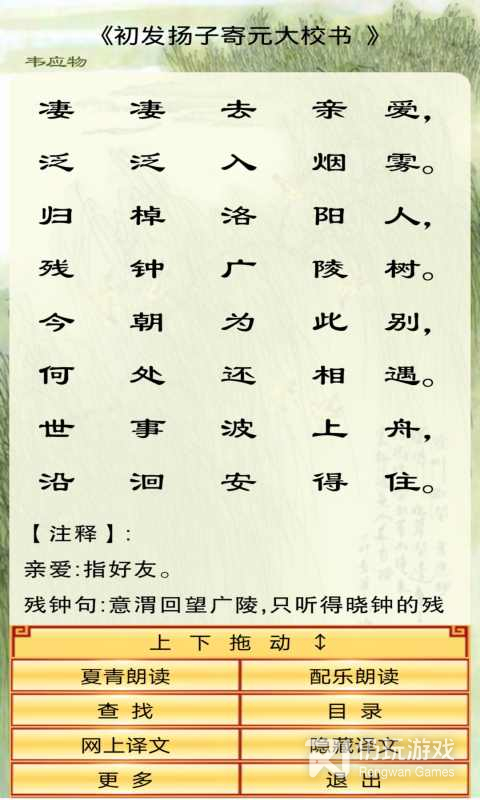 《初发扬子寄元大校书 》
韦应物
凄 凄 去 亲 爱，
泛 泛 入 烟 雾。
归 棹 洛 阳 人，
残 钟 广 陵 树。
今 朝 为 此 别，
何 处 还 相 遇。
世 事 波 上 舟，
沿 洄 安 得 住。
【注释】:
亲爱:指好友。
残钟句:意渭回望广陵,只听得晓钟的残
上 下 拖 动 ↕
夏青朗读 配乐朗读
查 找 目 录
网上译文 隐藏译文
更 多 退 出
Rongwan Games